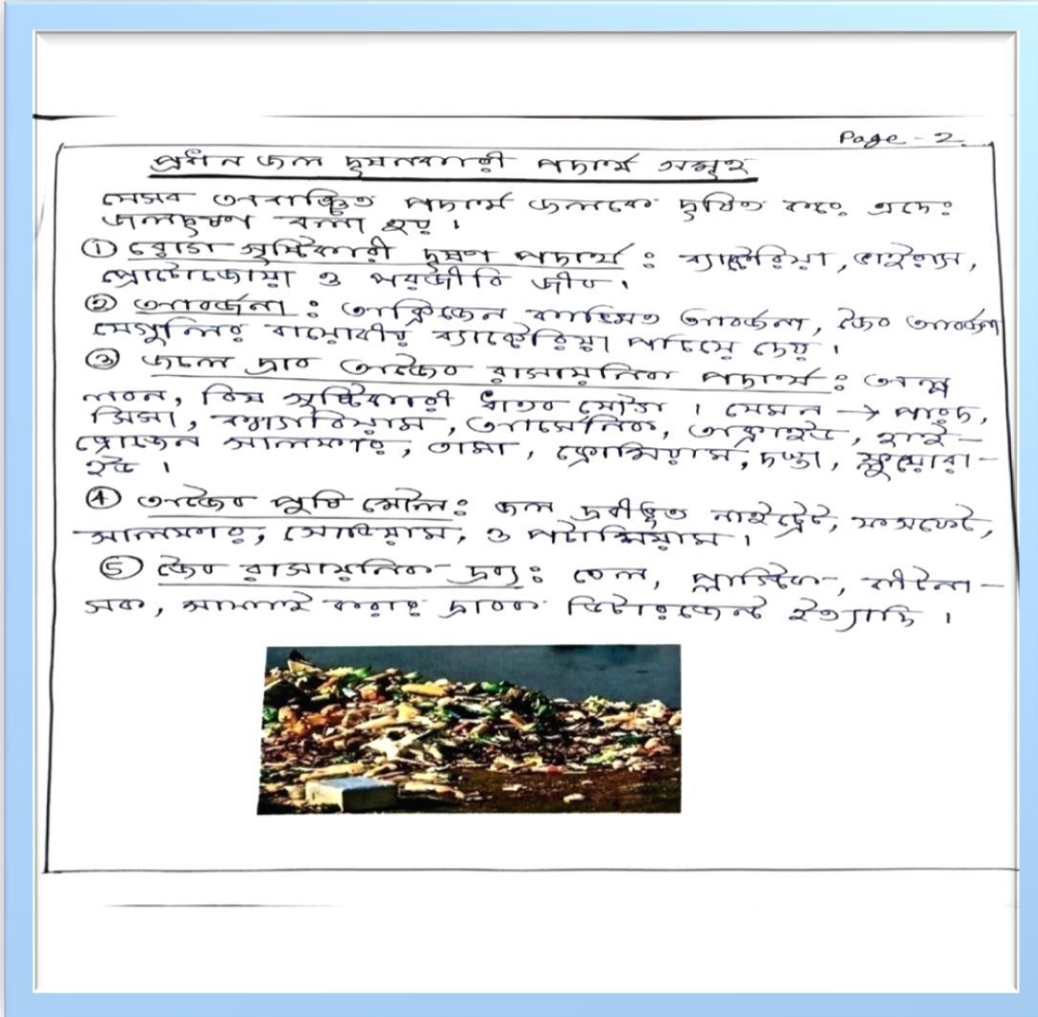 Page - 2.
প্রধান জল দূষনকারী পদার্থ সমূহ
যেসব অবাঞ্ছিত পদার্থ জলকে দূষিত করে এদের
জলদূষণ বলা হয় ।
① রোগ সৃষ্টিকারী দূষণ পদার্থ : ব্যাক্টেরিয়া, ভাইরাস,
প্রোটোজোয়া ও পরজীবি জীব ।
② আবর্জনা : অক্সিজেন আবর্জনা, জৈব আবর্জনা
যেগুলির বায়োবীয় ব্যাক্টেরিয়া পচিয়ে দেয় ।
③ জলে দ্রাব অজৈব রাসায়নিক পদার্থ : অম্ল
লবন, বিষ সৃষ্টিকারী ধাতব যৌগ । যেমন → পারদ,
সিসা, ক্যাডমিয়াম, আর্সেনিক, হাই-
ড্রোজেন সালফার, তামা, ক্রোমিয়াম, দস্তা, ফ্লুয়োরা-
ইড ।
④ অজৈব পুষ্টি মৌল : জল দ্রবীভূত নাইট্রেট, ফসফেট,
সালফার, সোডিয়াম, ও পটাশিয়াম ।
⑤ জৈব রাসায়নিক দ্রব্য : তেল, প্লাস্টিক, কীটনা-
সক, সাফাই করার দ্রাবক ডিটারজেন্ট ইত্যাদি ।